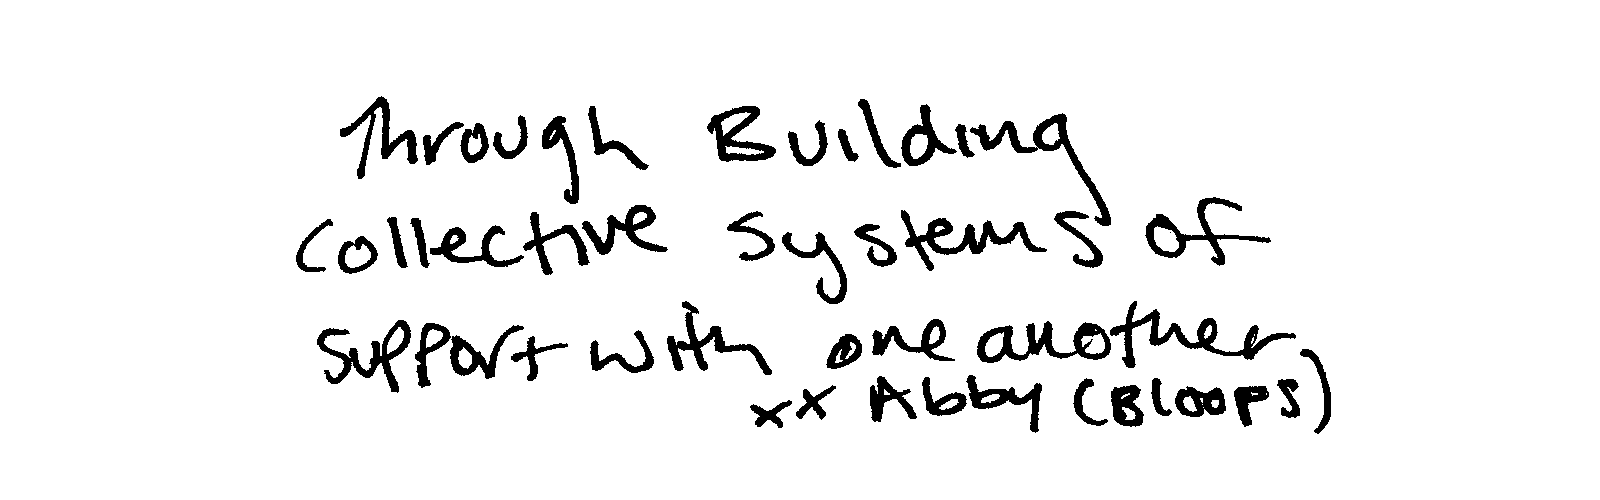 Through Building
collective systems of
support with one another
xx Abby (Bloops)